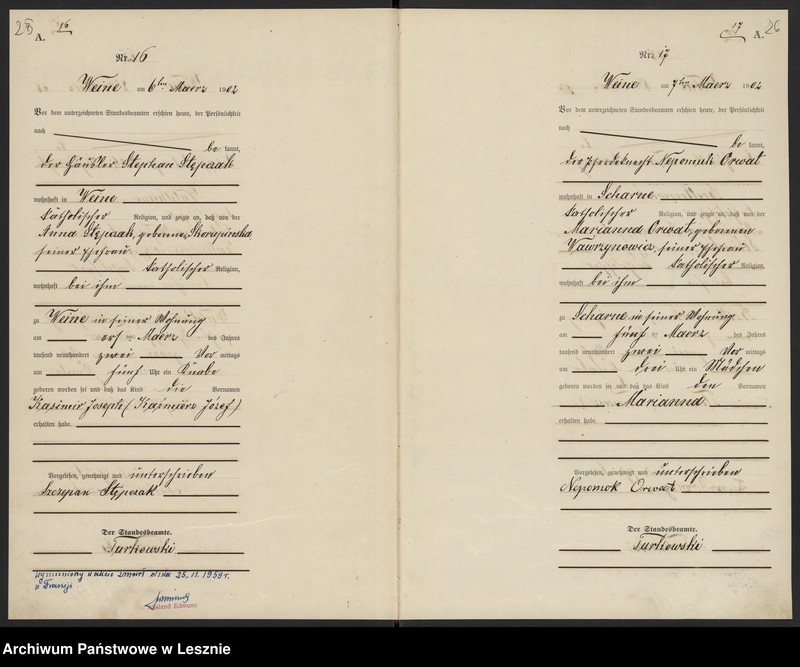 25
A. 16
Nr. 16
Weine am 6ten Maerz 1902
Vor dem unterzeichneten Standesbeamten erschien heute, der Persönlichkeit
nach
be kannt,
der Häusler Stephan Stępczak
wohnhaft in Weine
katholischer Religion, und zeigte an, daß von der
Anna Stępczak, geborene Skorupinska
seiner Ehefrau
katholischer Religion,
wohnhaft bei ihm
zu Weine in seiner Wohnung
am Maerz des Jahres
tausend neunhundert zwei Vor mittags
um fünf Uhr ein Knabe
geboren worden sei und daß das Kind die Vornamen
Kasimir Joseph (Kaźmierz Józef)
erhalten habe.
Vorgelesen, genehmigt und unterschrieben
Szczepan Stępczak
Der Standesbeamte.
Turkowski
wymieniony w akcie zmarł dnia 25.11.1959 r.
w Francji
Edmund
17
A. 26
Nr. 17
Weine am 7ten Maerz 1902
Vor dem unterzeichneten Standesbeamten erschien heute, der Persönlichkeit
nach
be kannt,
der Pferdeknecht Nepomuk Orwat
wohnhaft in Scharne
katholischer Religion, und zeigte an, daß von der
Marianna Orwat, geborenen
Wawrzynowicz, seiner Ehefrau
katholischer Religion,
wohnhaft bei ihm
zu Scharne in seiner Wohnung
am fünf Maerz des Jahres
tausend neunhundert zwei Vor mittags
um drei Uhr ein Mädchen
geboren worden sei und daß das Kind den Vornamen
Marianna
erhalten habe.
Vorgelesen, genehmigt und unterschrieben
Nepomok Orwat
Der Standesbeamte.
Turkowski
Archiwum Państwowe w Lesznie